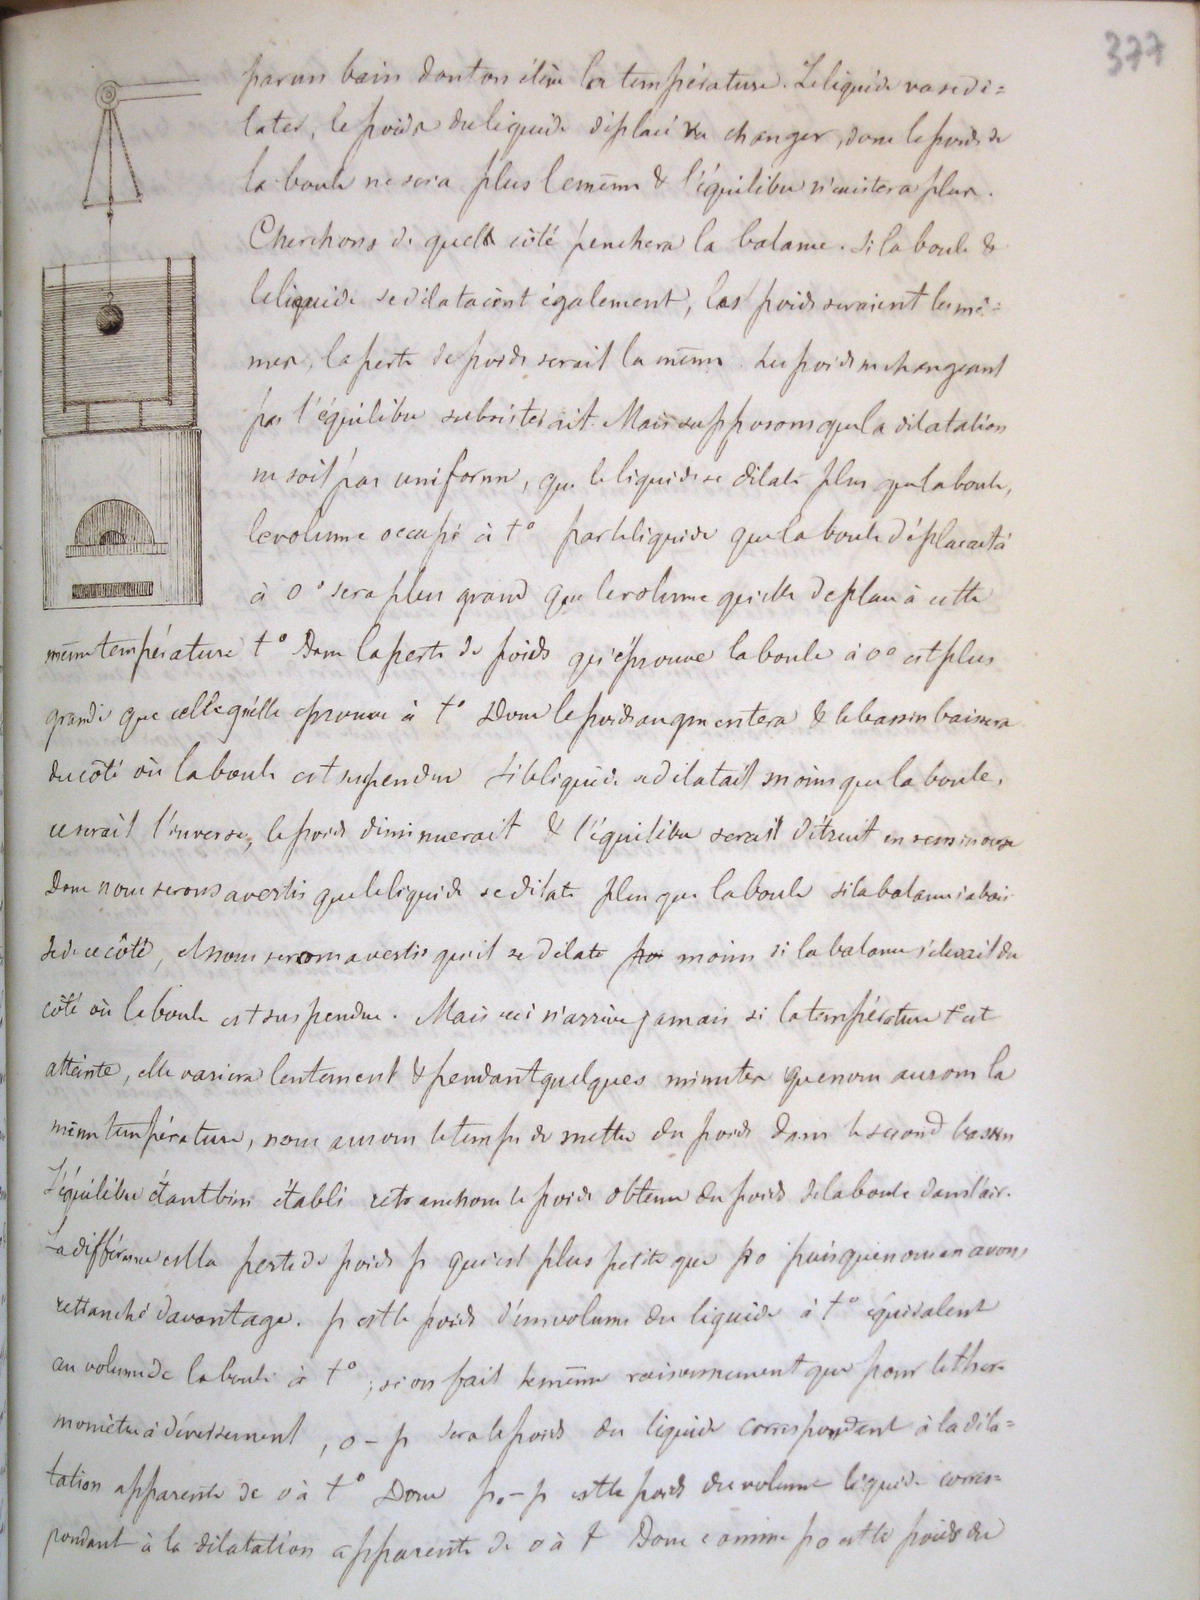 377
par un bain dont on élève la température. Le liquide va se di=
later, le poids du liquide déplacé va changer, donc le poids de
la boule ne sera plus le même & l'équilibre n'existera plus.
Cherchons de quel côté penchera la balance. Si la boule &
le liquide se dilataient également, les poids seraient les mê=
mes, la perte de poids serait la même. Les poids ne changeant
pas l'équilibre subsisterait. Mais supposons que la dilatation
ne soit pas uniforme, que le liquide se dilate plus que la boule,
le volume occupé à t° par le liquide que la boule déplacait
à 0° sera plus grand que le volume qu'elle déplace à cette
même température t° Donc la perte de poids qu'éprouve la boule à 0° est plus
grande que celle qu'elle éprouve à t° Donc le poids augmentera & le bassin baissera
du côté où la boule est suspendue Si le liquide se dilatait moins que la boule,
ce serait l'inverse, le poids diminuerait & l'équilibre serait détruit en sens inverse
Donc nous serons avertis que le liquide se dilate plus que la boule si la balance s'abais
se de ce côté, et nous serons avertis qu'il se dilate moins si la balance s'élevait du
côté où la boule est suspendue. Mais ceci n'arrive jamais si la température t° est
atteinte, elle variera lentement & pendant quelques minutes que nous aurons la
même température, nous aurons le temps de mettre du poids dans le second bassin
L'équilibre étant bien établi retranchons le poids obtenu du poids de la boule dans l'air.
La différence est la perte de poids p qui est plus petite que po puisque nous en avons
retranché davantage. p est le poids d'un volume du liquide à t° équivalent
au volume de la boule à t° ; si on fait le même raisonnement que pour le ther=
momètre à déversement, o - p sera le poids du liquide correspondant à la dila=
tation apparente de 0 à t° Donc p₀ - p est le poids du volume liquide corres=
pondant à la dilatation apparente de 0 à t Donc comme po est le poids du